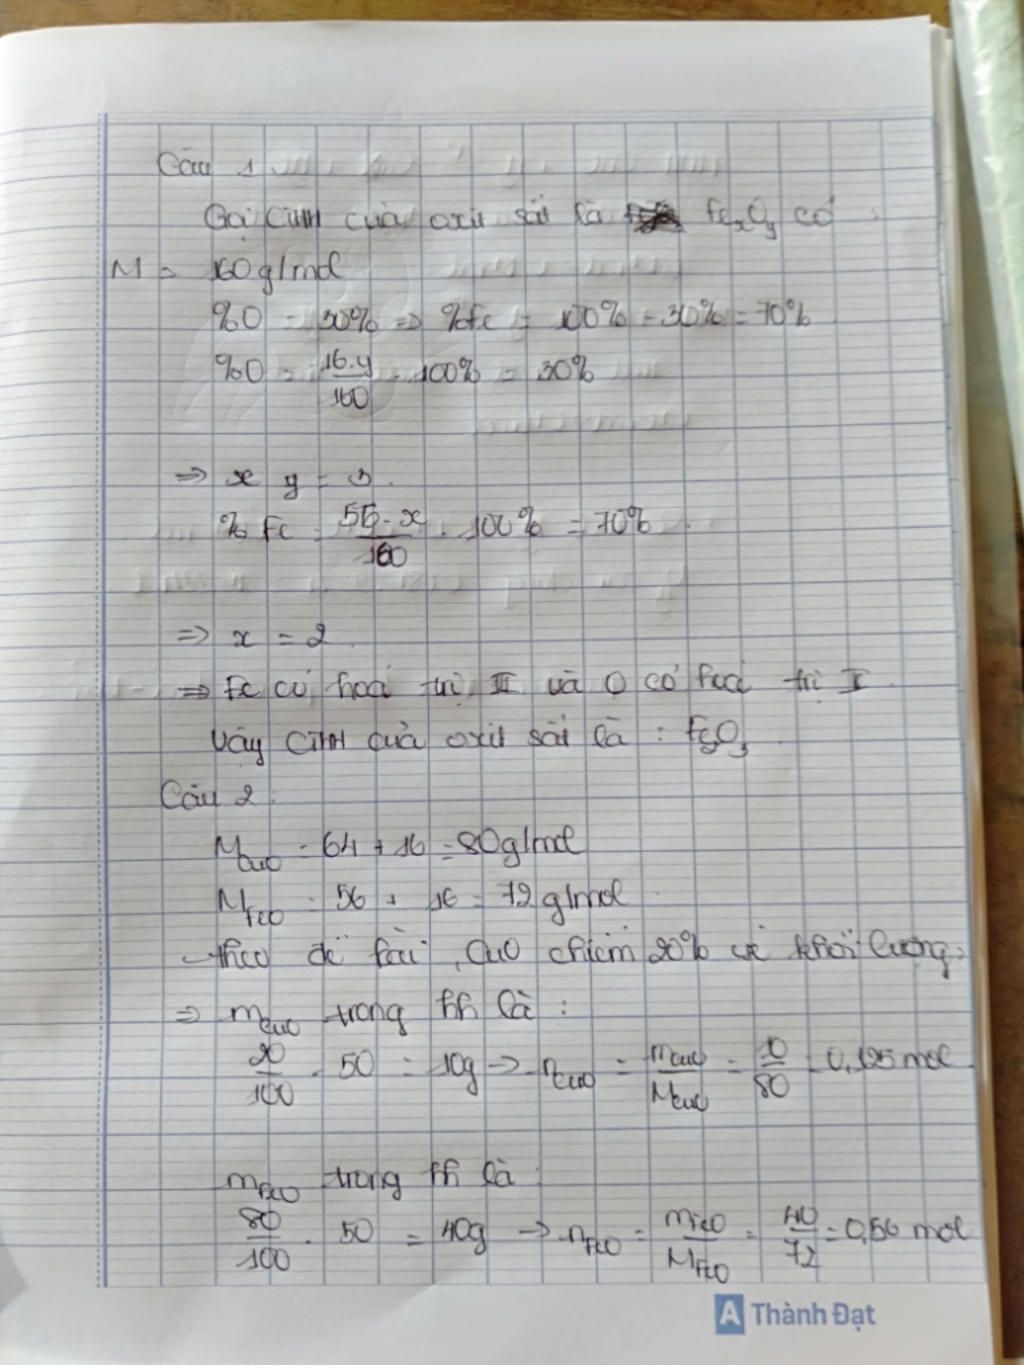 Câu 1.
Gọi CTHH của oxit sắt là FexOy có
M = 160g/mol
%O = 30% => %Fe = 100% - 30% = 70%
%O = 16.y/160 . 100% = 30%
=> x y = 3.
% Fe = 56.x/160 . 100% = 70%
=> x = 2.
=> Fe có hoá trị III và O có hoá trị
Vậy CTHH của oxit sắt là : Fe2O3
Câu 2:
MCuO = 64 + 16 = 80g/mol
MFeO = 56 + 16 = 72 g/mol
theo đề bài, CuO chiếm 20% về khối lượng
=> mCuO trong hh là :
20/100 . 50 = 10g -> nCuO = mCuO/MCuO = 10/80 = 0,125 mol
mFeO trong hh là :
80/100 . 50 = 40g -> nFeO = mFeO/MFeO = 40/72 = 0,56 mol
A Thành Đạt